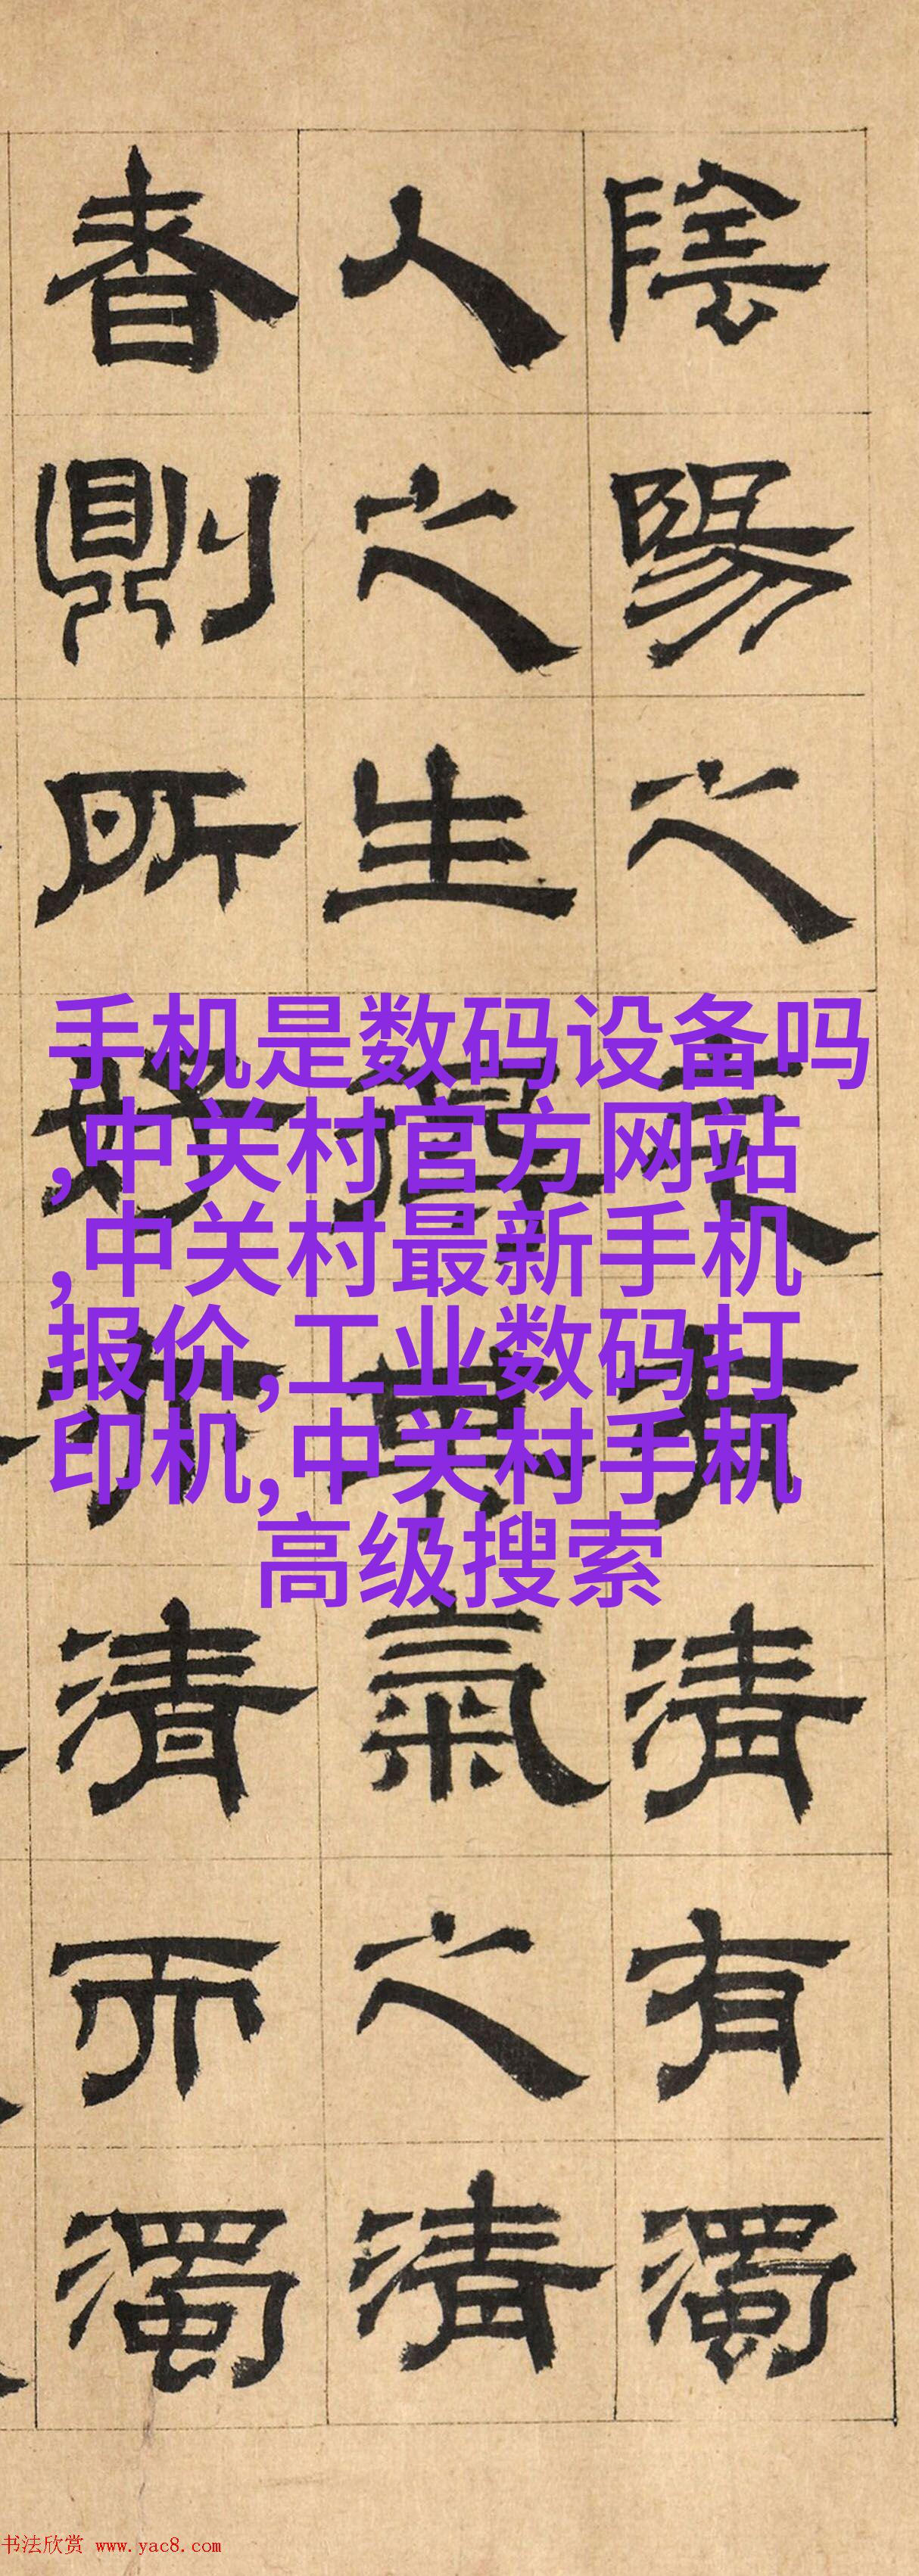 陰陽之
有清有濁
人之生
氣之清
者則所好
清而濁
手机是数码设备吗
,中关村官方网站
,中关村最新手机
报价,工业数码打
印机,中关村手机
高级搜索
书法欣赏 www.yac8.com